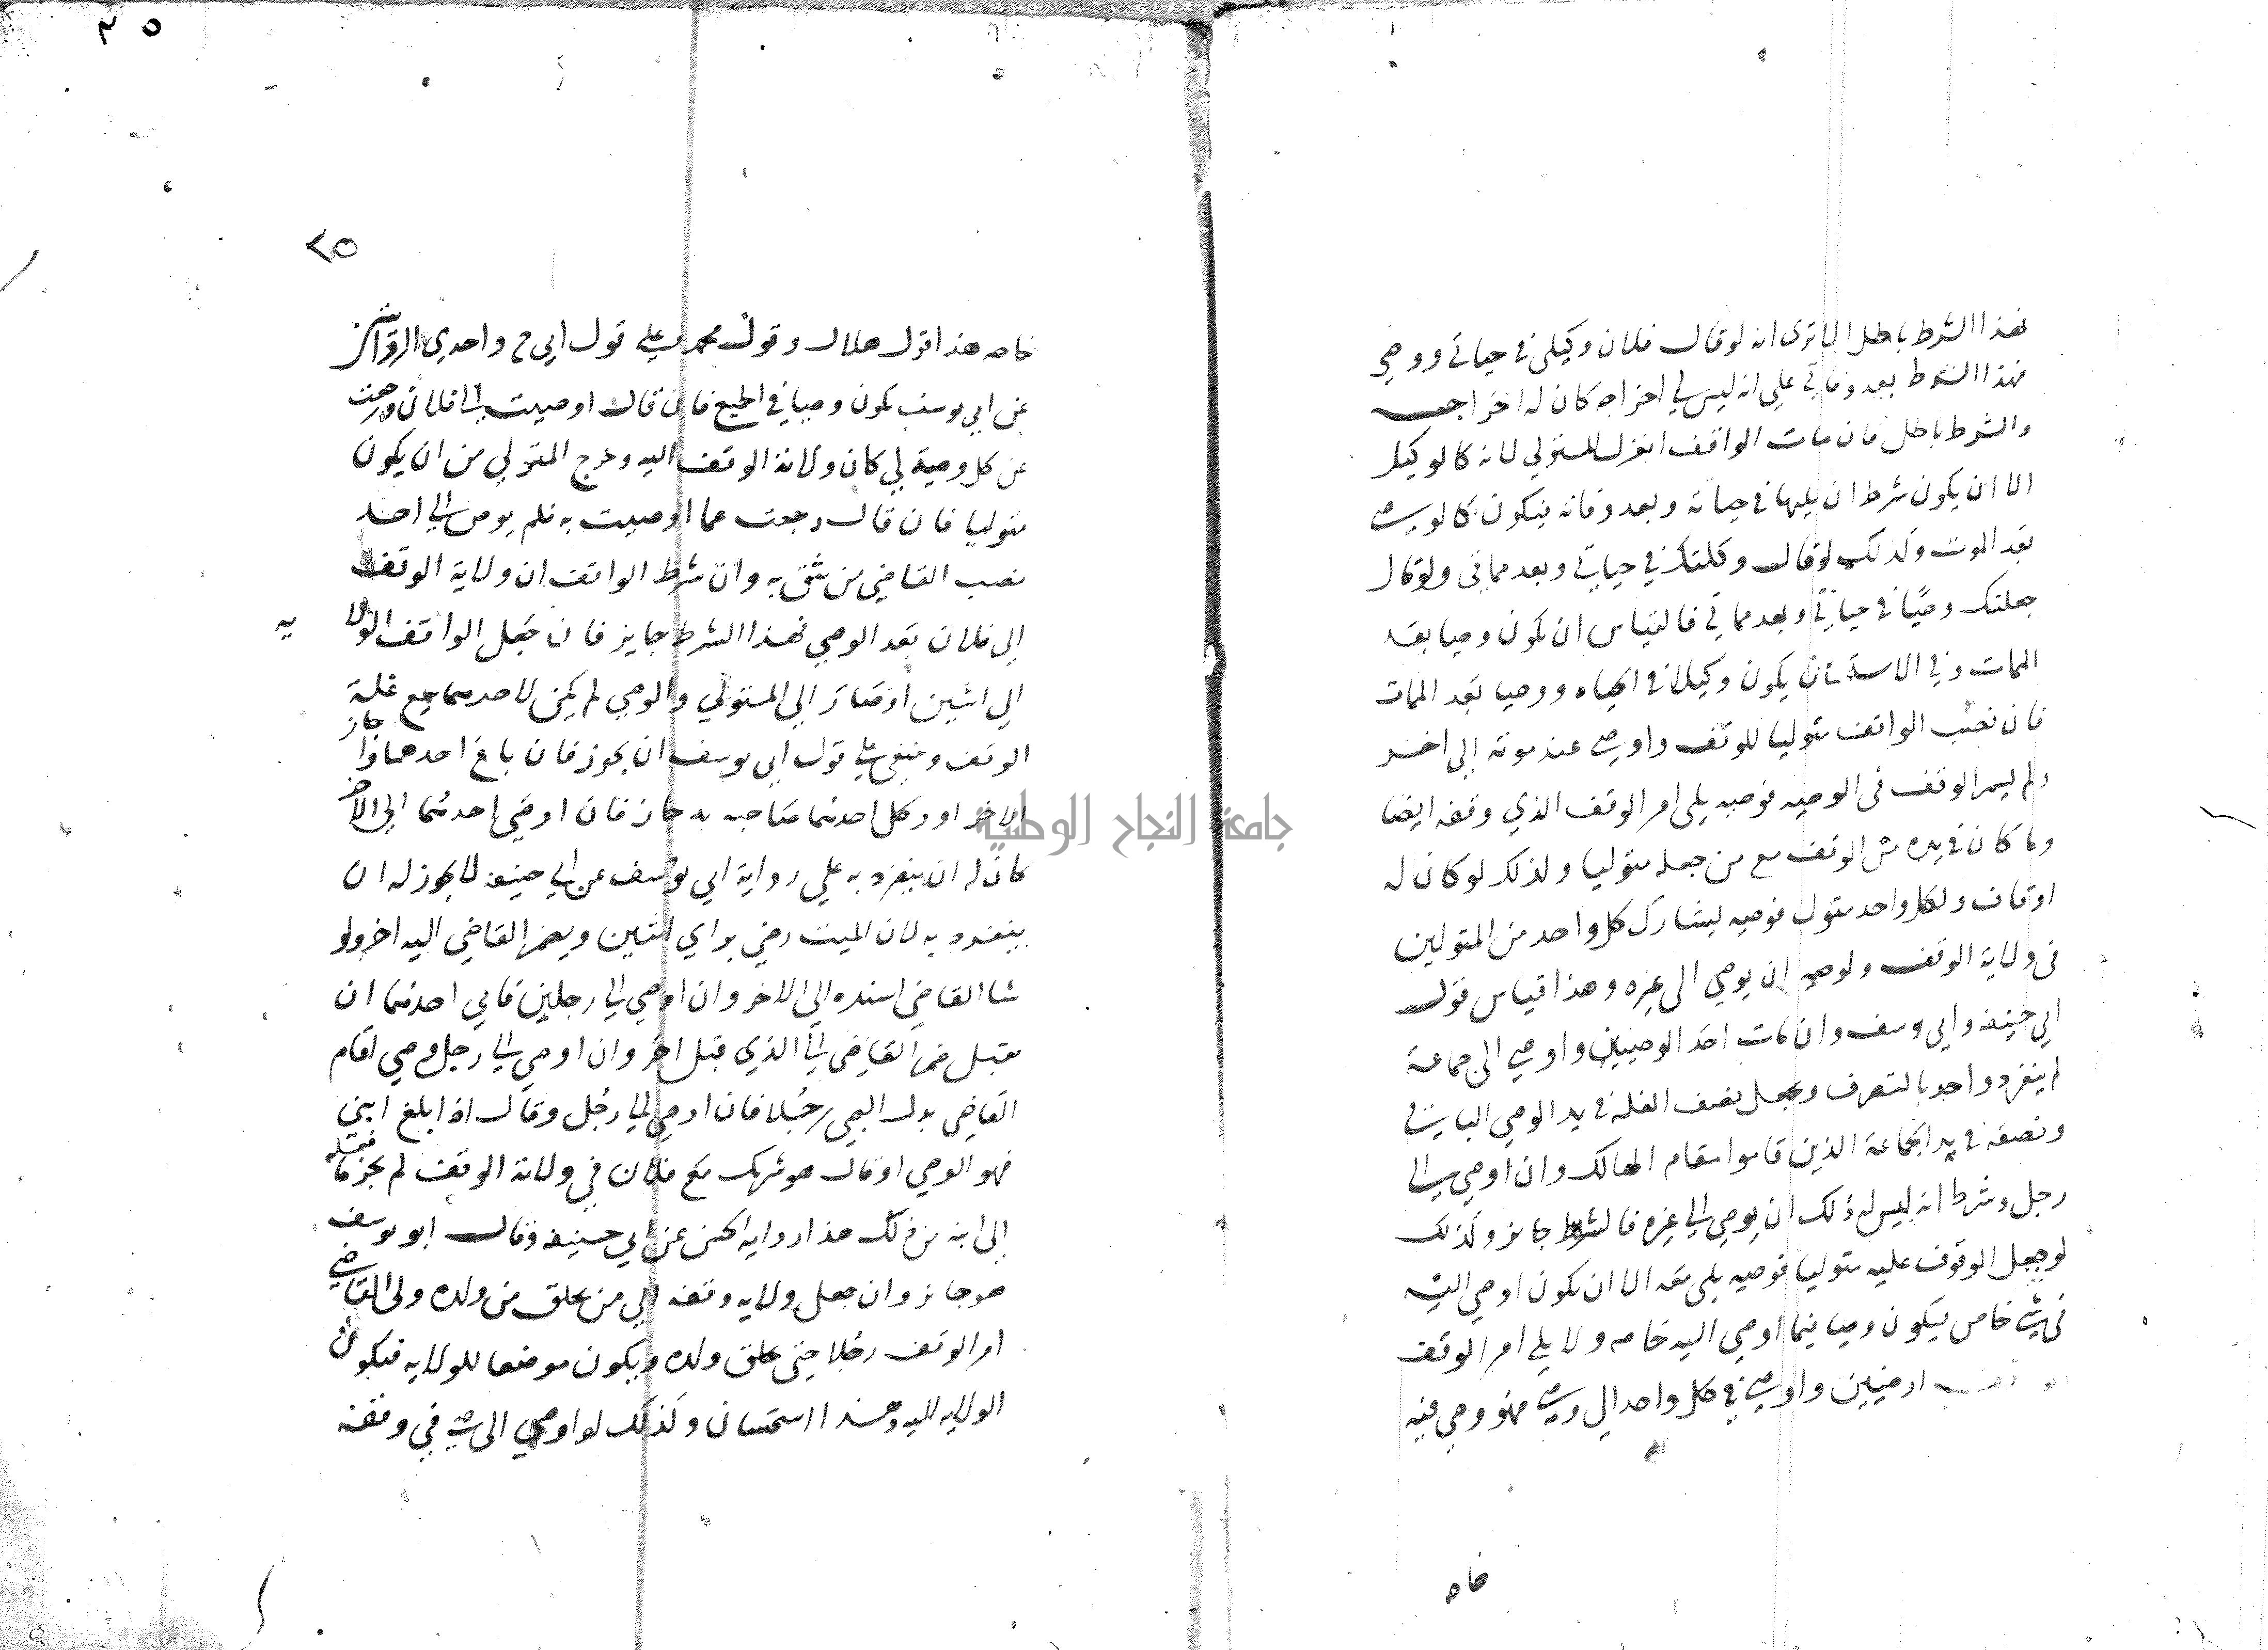 فهذا الشرط باطل الا ترى انه لو قال فلان وكيلي في حياتي ووصي
فهذا الشرط بعد وفاتي علي انه ليس لي اخراجه كان له اخراجه
والشرط باطل فان مات الواقف انعزل المتولي لانه كالوكيل
الا ان يكون شرط ان يليها في حياته وبعد وفاته فيكون كالوصي
بعد الموت وكذلك لو قال وكلتك في حياتي وبعد مماتي ولو قال
جعلتك وصيا في حياتي وبعد مماتي فالقياس ان يكون وصيا بعد
الممات وفي الاستحسان يكون وكيلا في الحياه ووصيا بعد الممات
فان نصب الواقف متوليا للوقف واوصى عند موته الى اخر
ولم يسم الوقف في الوصيه فوصيه يلي امر الوقف الذي وقفه ايضا
وما كان في يده من الوقف مع من جعله متوليا ولذلك لو كان له
اوقاف ولكل واحد متول فوصيه يشارك كل واحد من المتولين
في ولاية الوقف ولوصيه ان يوصي الى غيره وهذا قياس قول
ابي حنيفه وابي يوسف وان مات احد الوصيين واوصى الى جماعة
لم ينفرد واحد بالتصرف ويجعل نصف الغله في يد الوصي الباقي
ونصفه في يد الجماعة الذين قاموا مقام الهالك وان اوصي الي
رجل وشرط انه ليس له ذلك ان يوصي الي غيره فالشرط جايز وكذلك
لو جعل الوقوف عليه متوليا فوصيه يلي معه الا ان يكون اوصي اليه
في شي خاص فيكون وصيا فيما اوصي اليه خاصه ولا يلي امر الوقف
ارضين واوصي في كل واحد الى وصي فهو وصي فيه
خاصه
٢٥
٢٥
خاصه هذا قول هلال وقول محمد وعلي قول ابي ح واحدي الروايتين
عن ابي يوسف يكون وصيا في الجميع فان قال اوصيت الى فلان ورجعت
عن كل وصية لي كان ولاية الوقف اليه وخرج المتولي من ان يكون
متوليا فان قال رجعت عما اوصيت به فلم يوص الي احد
نصب القاضي من يثق به وان شرط الواقف ان ولاية الوقف
الي فلان بعد الوصي فهذا الشرط جايز فان جعل الواقف الولا يه
الي اثنين او صار الي المتولي والوصي لم يكن لاحدهما بيع غلة
الوقف وينبغي علي قول ابي يوسف ان يجوز فان باع احدهما واجاز
الاخر او وكل احدهما صاحبه به جاز فان اوصي احدهما الي الاخر
كان له ان ينفرد به علي رواية ابي يوسف عن ابي حنيفه لا يجوز له ان
ينفرد به لان الميت رضي براي اثنين ويضم القاضي اليه اخر ولو
شا القاضي اسنده الي الاخر وان اوصي الي رجلين فابي احدهما ان
يقبل ضم القاضي الي الذي قبل اخر وان اوصي الي رجل وصبي اقام
القاضي بدل الصبي رجلا فان اوصي الي رجل وقال اذا بلغ ابني
فهو الوصي او قال هو شريك مع فلان في ولاية الوقف لم يجز ما جعله
الى ابنه من ذلك هذا رواية الحسن عن ابي حنيفه وقال ابو يوسف
هو جايز وان جعل ولايه وقفه الي من يخلق من ولده ولى القاضي
امر الوقف رجلا حتي يخلق ولده ويكون موضعا للولايه فيكون
الولايه اليه وهذا استحسان وكذلك لو اوصي الى صبي في وقفه
جامعة النجاح الوطنية